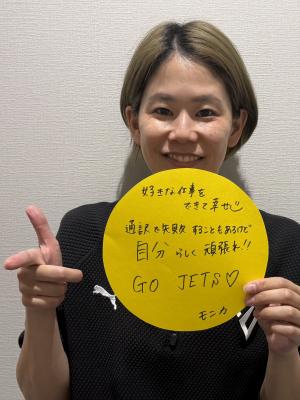 好きな仕事を
できて幸せ
通訳で失敗することもあるけど
自分らしく頑張れ!!
GO JETS♡
モニカ